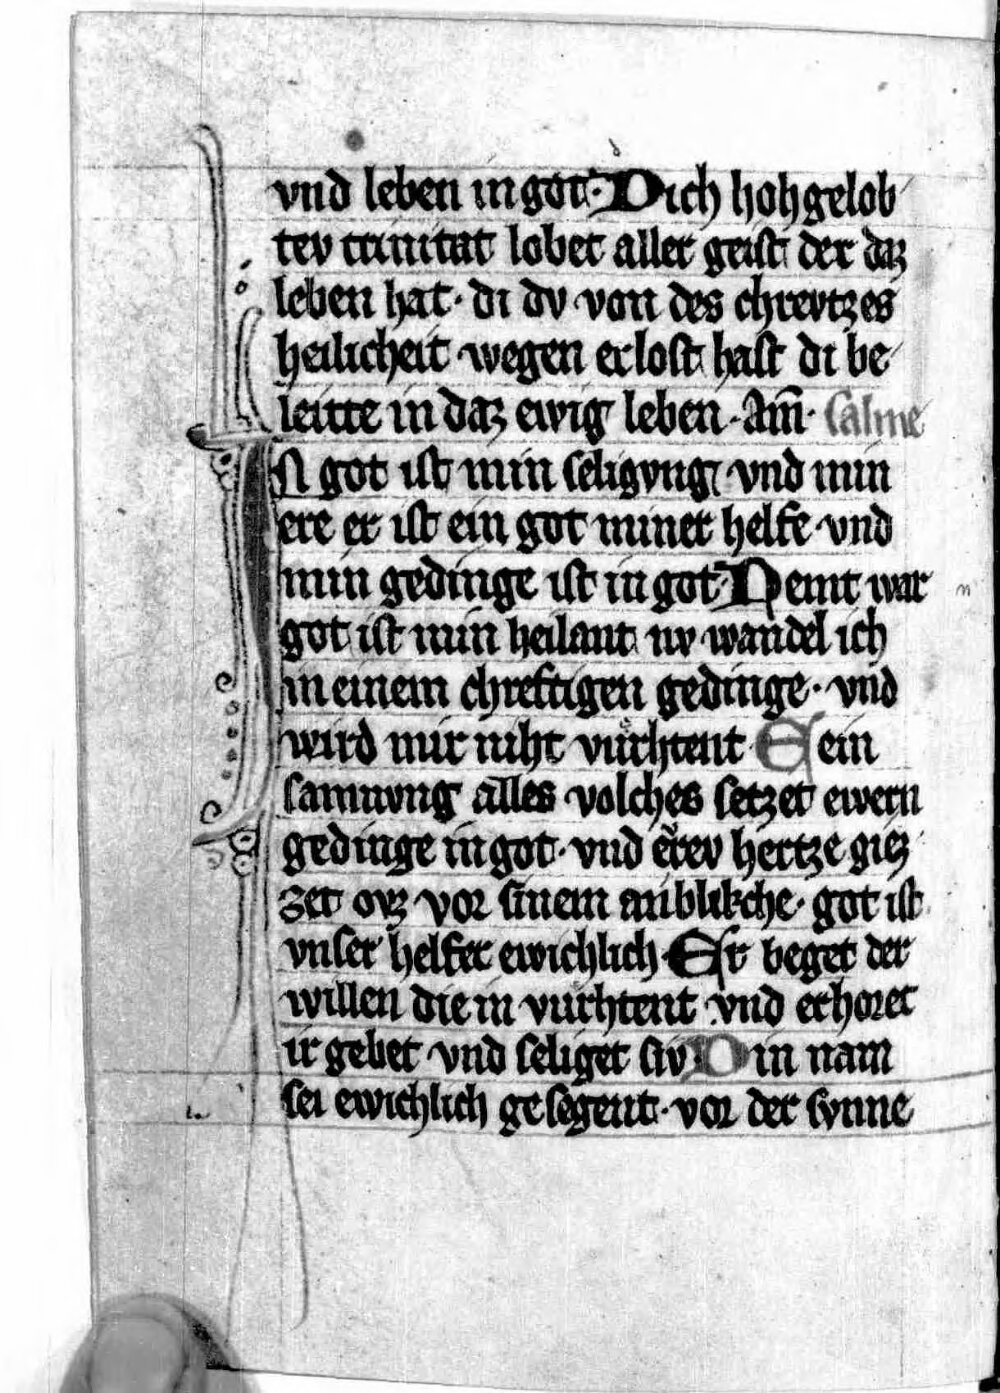 vnd leben in got· Dich hohgelob
tev trinitat lobet aller geist der daz
leben hat· di dv von des chrevtzes
heilicheit wegen erlost hast di be
leitte in daz ewig leben· Am̄· Salme
IN got ist min seligvng vnd min
ere er ist ein got miner helfe vnd
min gedinge ist in got· Nemt war
got ist min heilant nv wandel ich
in einem chreftigen gedinge· vnd
wird mir niht vuͤrhtent Sein
samnvng alles volches setzet ewern
gedinge in got· vnd erev hertze giez
zet ovz vor sinem anblikche· got ist
vnser helfer ewichlich Er beget der
willen die in vuͤrhtent vnd erhoret
ir gebet vnd seliget siv Din nam
sei ewichlich gesegent· vor der svnne